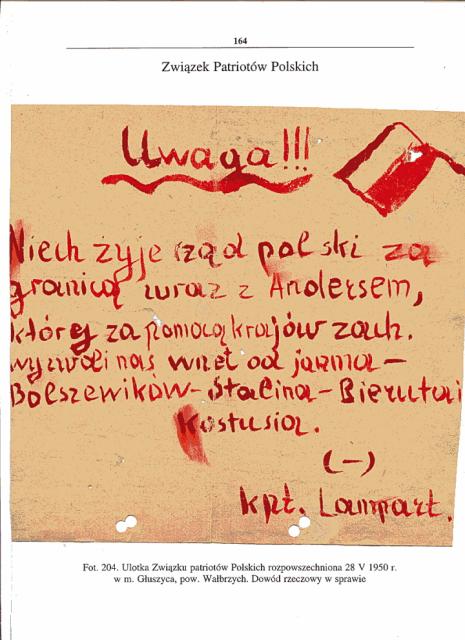 164
Związek Patriotów Polskich
Uwaga!!!
Niech żyje rząd polski za
granicą wraz z Andersem,
który za pomocą krajów zach.
wyzwoli nas wnet od jarma –
Bolszewików – Stalina – Bieruta i
Kostusia.
(–)
kpt. Lampart.
Fot. 204. Ulotka Związku patriotów Polskich rozpowszechniona 28 V 1950 r.
w m. Głuszyca, pow. Wałbrzych. Dowód rzeczowy w sprawie